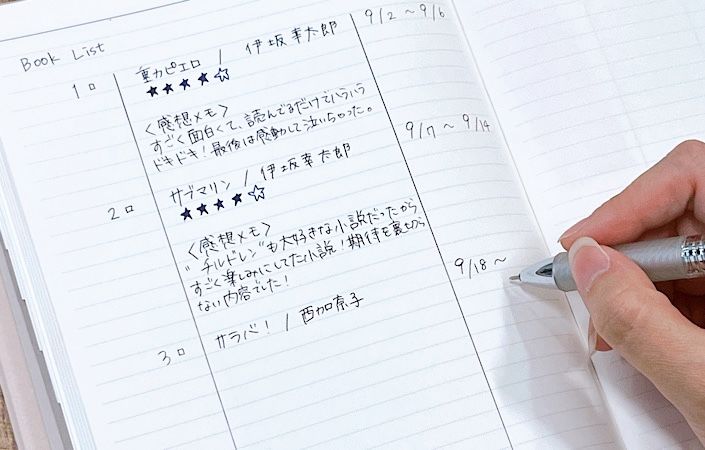 Book List
1 □ 重力ピエロ / 伊坂幸太郎 9/2 ~ 9/6
★★★★☆
<感想メモ>
すごく面白くて、読んでるだけでハラハラ
ドキドキ!最後は感動して泣いちゃった。
2 □ サブマリン / 伊坂幸太郎 9/7 ~ 9/14
★★★★☆
<感想メモ>
"チルドレン"も大好きな小説だったから
すごく楽しみにしてた小説!期待を裏切ら
ない内容でした!
3 □ サラバ! / 西加奈子 9/18 ~